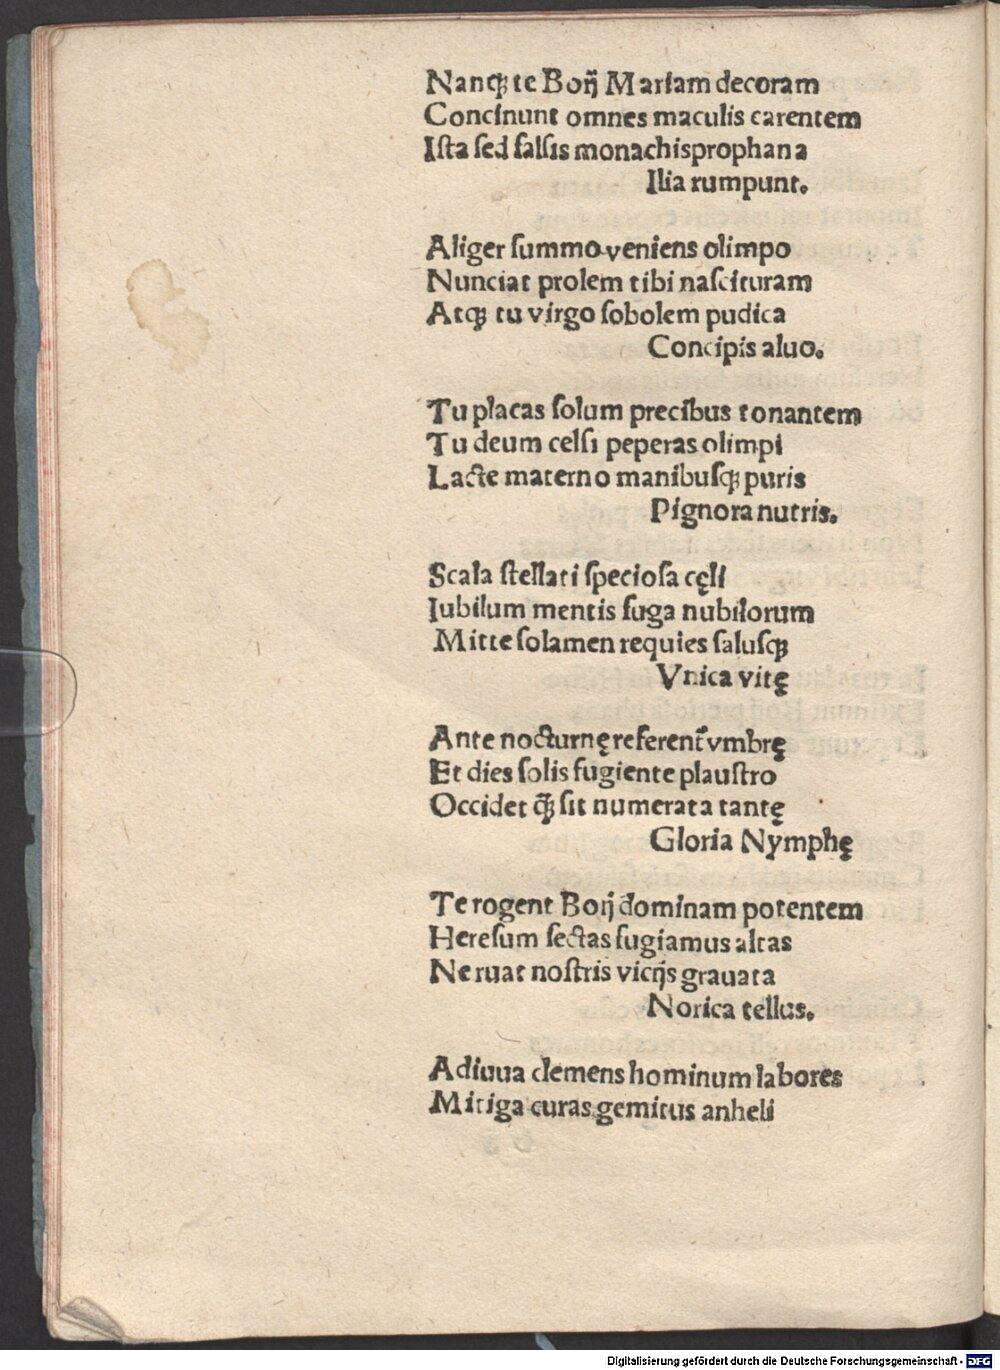 Nanqꝫ te Borij Mariam decoram
Concinunt omnes maculis carentem
Ista sed falsis monachisprophana
Ilia rumpunt.
Aliger summo veniens olimpo
Nunciat prolem tibi nascituram
Atqꝫ tu virgo sobolem pudica
Concipis aluo.
Tu placas solum precibus tonantem
Tu deum celsi peperas olimpi
Lacte materno manibusqꝫ puris
Pignora nutris.
Scala stellati speciosa cęli
Iubilum mentis fuga nubilorum
Mitte solamen requies salusqꝫ
Vnica vitę
Ante nocturnę referent᷑ vmbrę
Et dies solis fugiente plaustro
Occidet qꝫ̃ sit numerata tantę
Gloria Nymphę
Te rogent Borij dominam potentem
Heresum sectas fugiamus altas
Ne ruat nostris vicijs grauata
Norica tellus.
Adiuua clemens hominum labores
Mitiga curas gemitus anheli
Digitalisierung gefördert durch die Deutsche Forschungsgemeinschaft - DFG